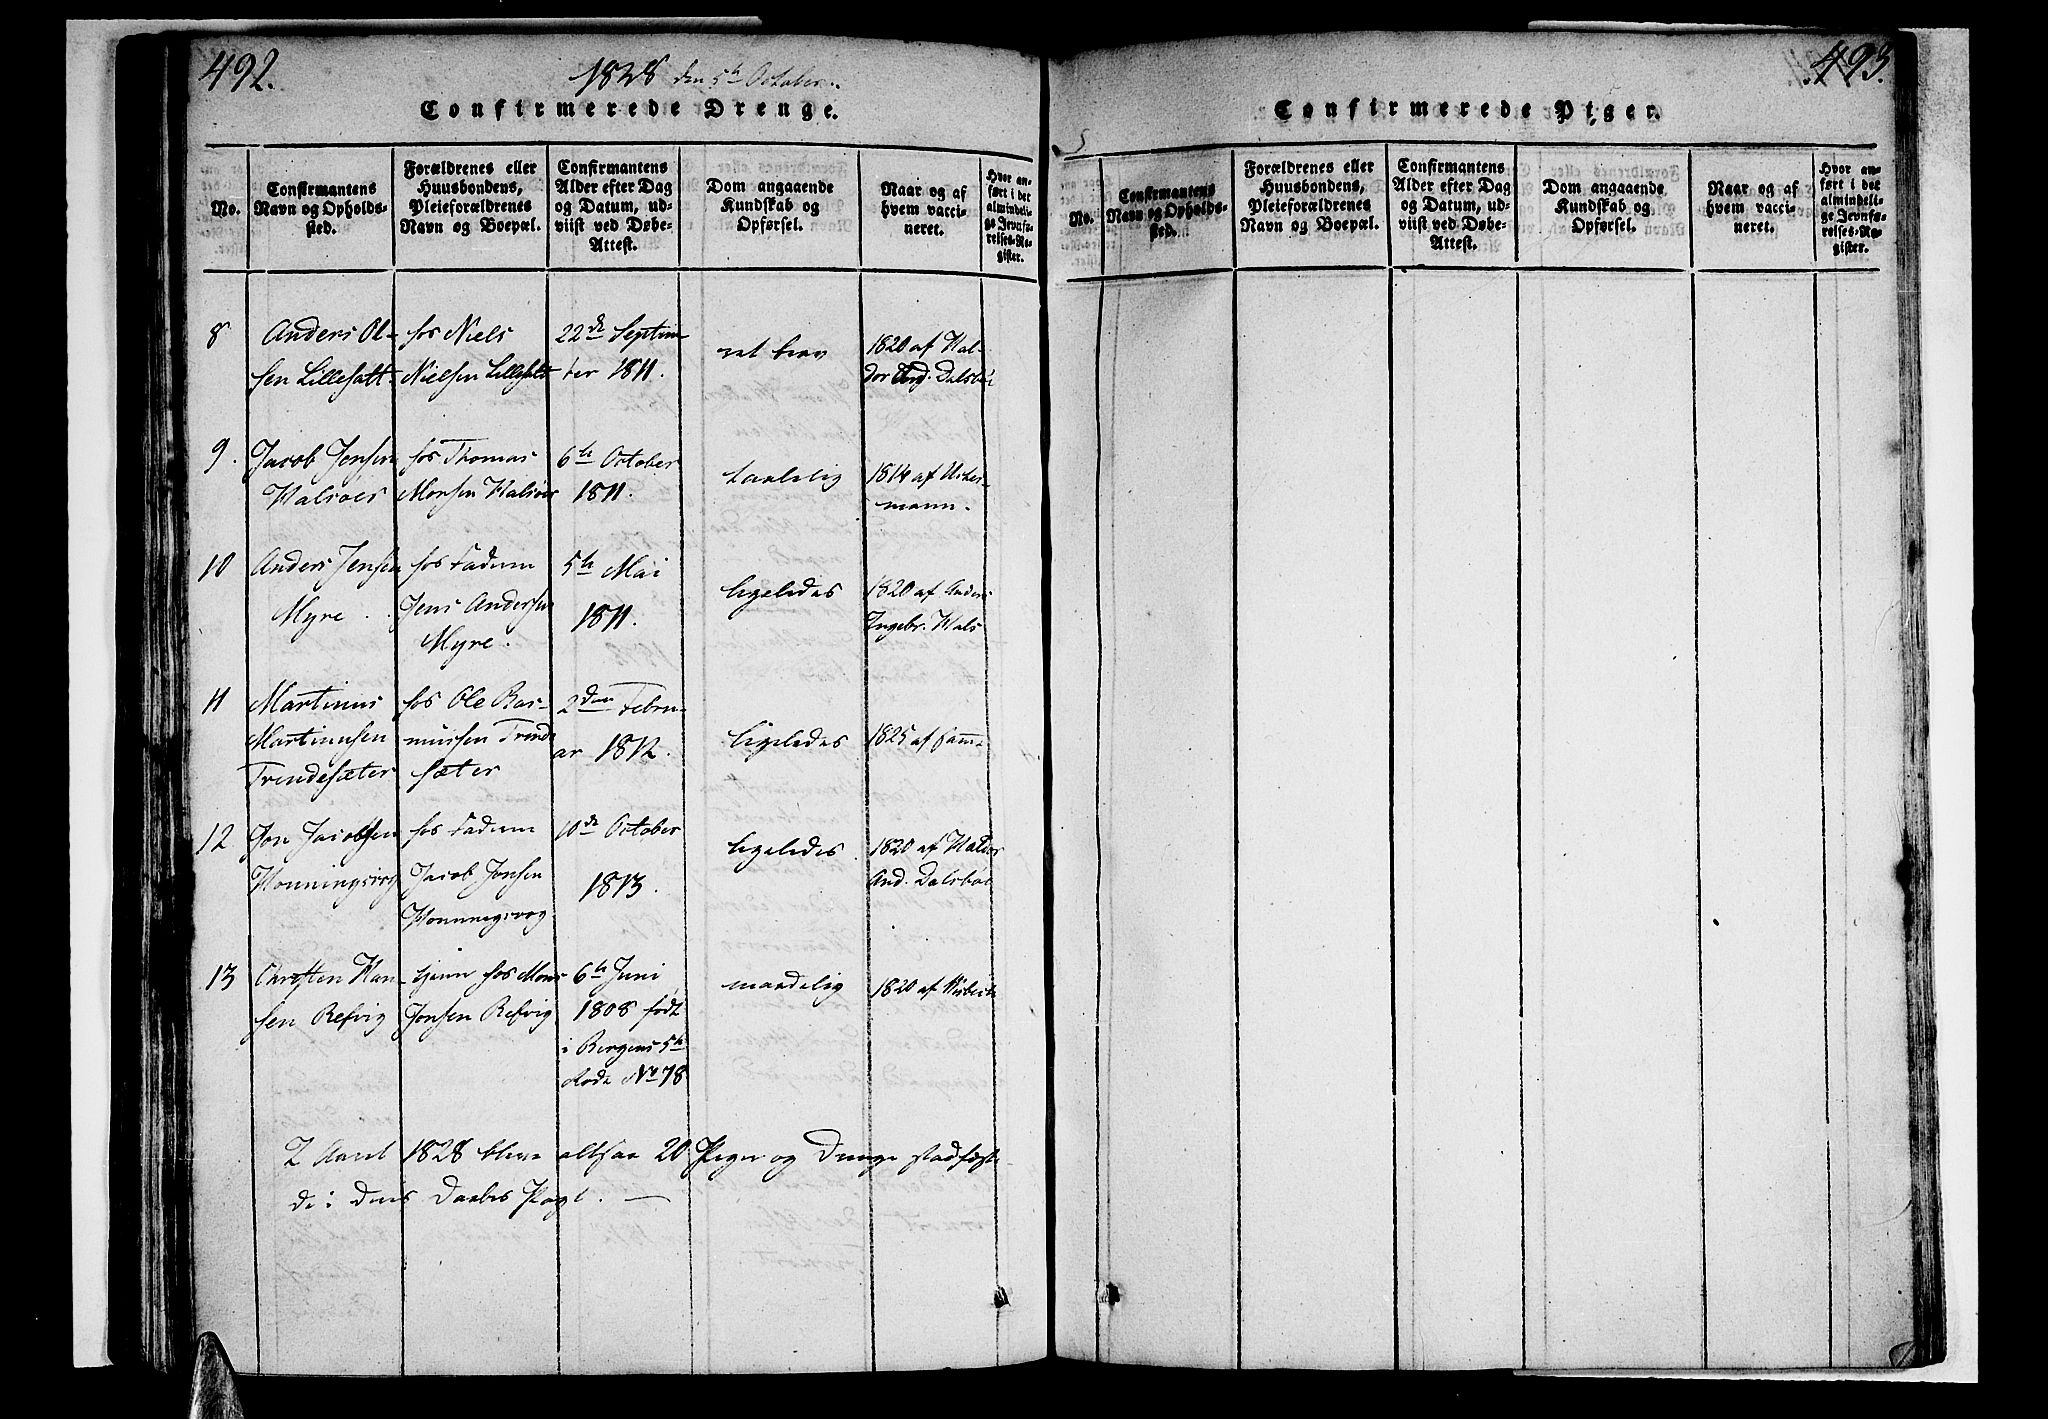 492.
1828 den 5te October.
Confirmerede Drenge.
No.
Confirmantens
Navn og Opholds-
sted.
Forældrenes eller
Huusbondens,
Pleieforældrenes
Navn og Boepæl.
Confirmantens
Alder efter Dag
og Datum, ud-
viist ved Døbe-
Attest.
Dom angaaende
Kundskab og
Opførsel.
Naar og af
hvem vacci-
neret.
Hvor an-
ført i det
almindeli-
ge Jevnfø-
relses-Re-
gister.
8
Anders Ol-
sen Lillesatt
hos Niels
Nielsen Lillesatt
22de Septem-
ber 1811.
ret brav
1820 af Hal-
dor And. Dalsbøe
9.
Jacob Jensen
Halsøer
hos Thomas
Monsen Halsøer
6te October
1811.
taalelig
1814 af
mann.
10
Anders Jensen
Myre.
hos Faderen
Jens Andersen
Myre.
5te Mai
1811.
ligeledes
1820 af Anders
Ingebr. Hals
11
Martinus
Martinussen
Trendesæter
hos Ole Ras-
mussen Trende
sæter
2den Febru-
ar 1812.
ligeledes
1825 af samme
12
Jon Jacobsen
Honningsvog
hos Faderen
Jacob Jonsen
Honningsvog
10de October
1813.
ligeledes.
1820 af Haldor
And. Dalsbøe
13
Christen Han-
sen Refvig
tjener hos Mons
Jonsen Refvig
6te Juni
1808 født
i Bergens 5te
Rode No 78
maadelig
1820 af
I Aaret 1828 bleve altsaa 20 Piger og Drenge stadfæste-
de i deres Daabes Pagt. —
493.
Confirmerede Piger.
No.
Confirmantens
Navn og Opholds-
sted.
Forældrenes eller
Huusbondens,
Pleieforældrenes
Navn og Boepæl.
Confirmantens
Alder efter Dag
og Datum, ud-
viist ved Døbe-
Attest.
Dom angaaende
Kundskab og
Opførsel.
Naar og af
hvem vacci-
neret.
Hvor an-
ført i det
almindeli-
ge Jevnfø-
relses-Re-
gister.